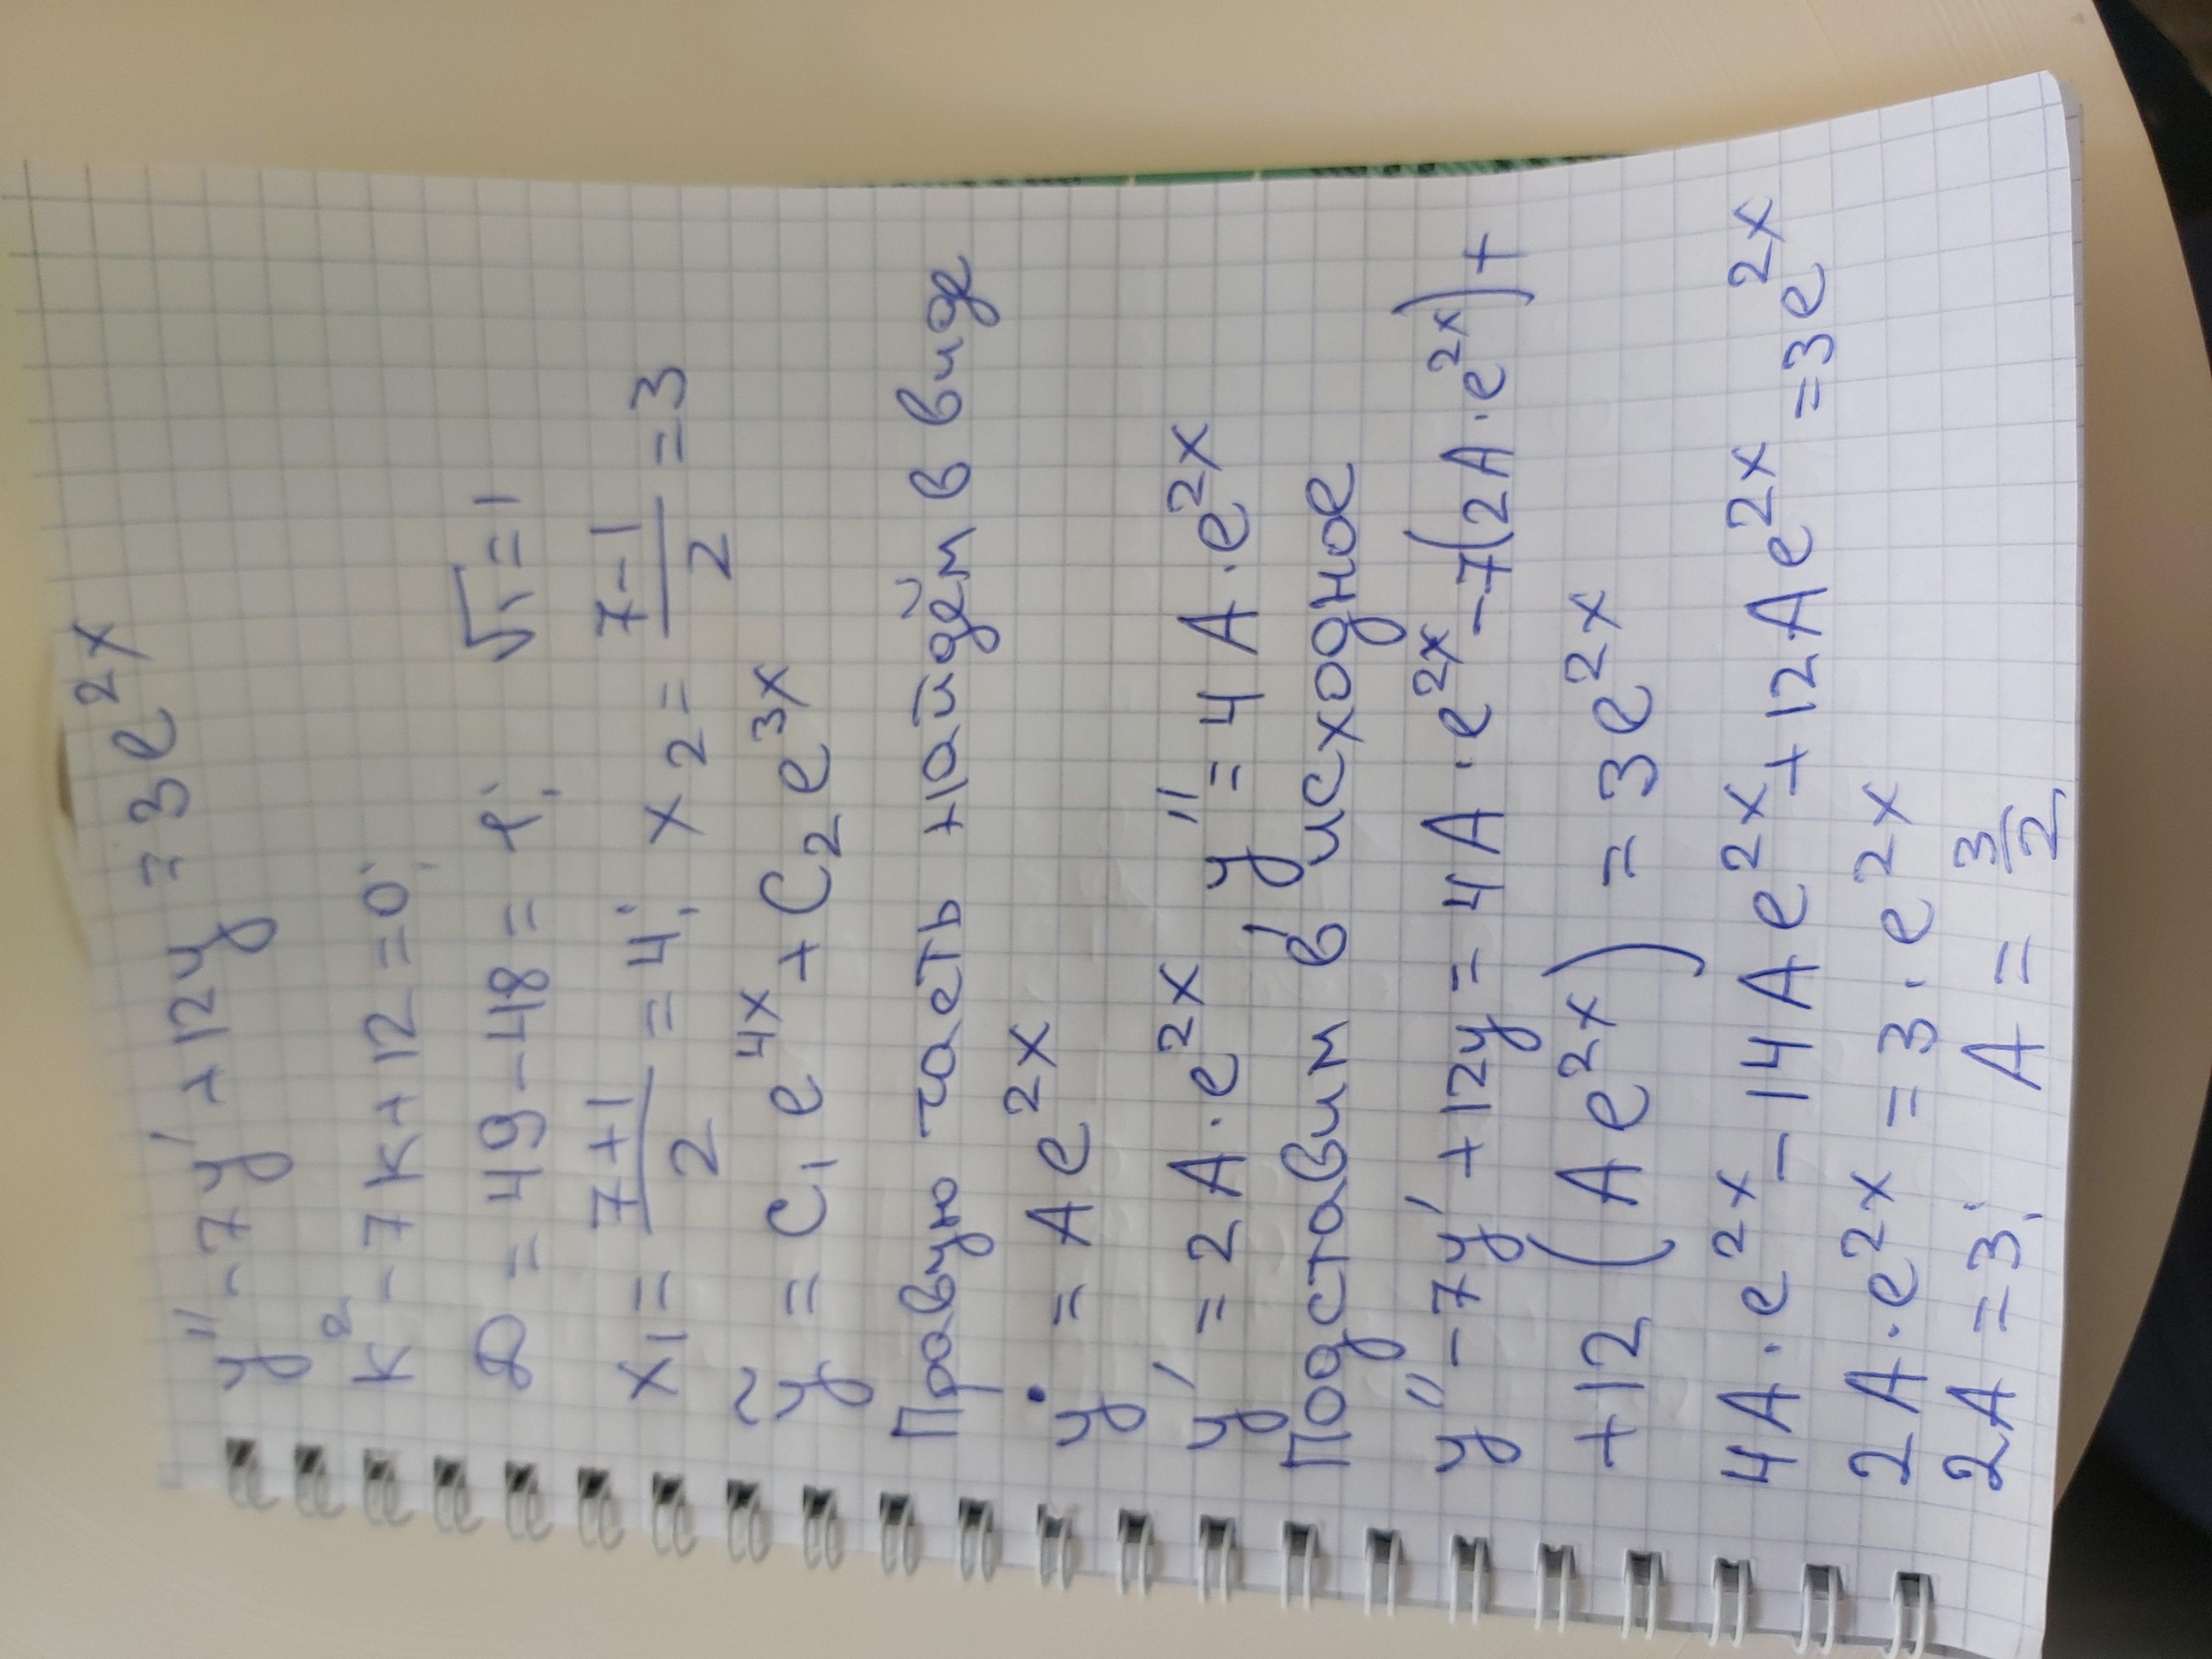 y'' - 7y' + 12y = 3e^{2x}
k² - 7k + 12 = 0;
D = 49 - 48 = 1; √1 = 1
x₁ = (7+1)/2 = 4; x₂ = (7-1)/2 = 3
ỹ = C₁e^{4x} + C₂e^{3x}
Правую часть найдём в виде
y• = Ae^{2x}
y' = 2A·e^{2x} y'' = 4A·e^{2x}
Подставим в исходное
y'' - 7y' + 12y = 4A·e^{2x} - 7(2A·e^{2x}) +
+ 12(Ae^{2x}) = 3e^{2x}
4A·e^{2x} - 14Ae^{2x} + 12Ae^{2x} = 3e^{2x}
2A·e^{2x} = 3·e^{2x}
2A = 3; A = 3/2